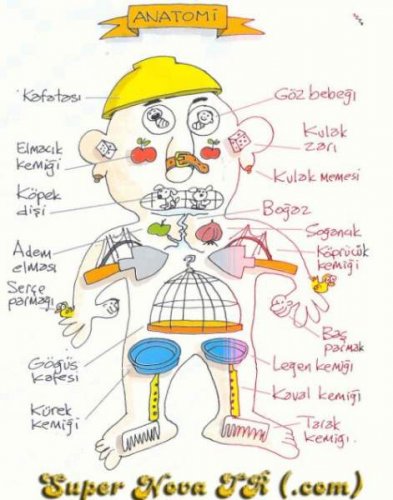 ANATOMİ
Kafatası
Göz bebeği
Elmacık
kemiği
Kulak
zarı
Köpek
dişi
Kulak Memesi
Boğaz
Adem
elması
Soğancık
Köprücük
kemiği
Serçe
parmağı
Baş
parmak
Göğüs
kafesi
Leğen kemiği
Kürek
kemiği
Kaval kemiği
Tarak
kemiği.
Super Nova TR (.com)